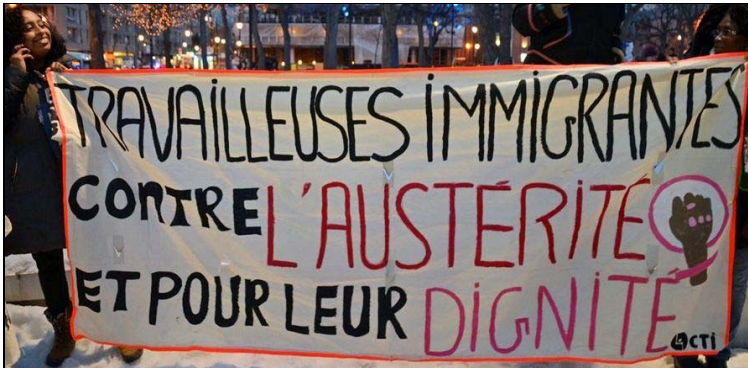 TRAVAILLEUSES IMMIGRANTES
CONTRE L'AUSTÉRITÉ
ET POUR LEUR DIGNITÉ